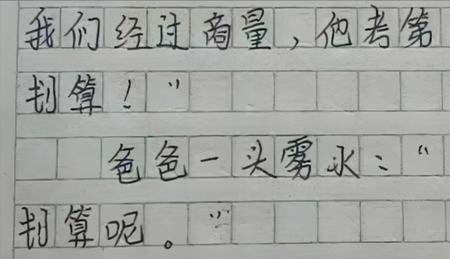 我们经过商量，他考第
划算！”
色色一头雾水：“
划算呢。”